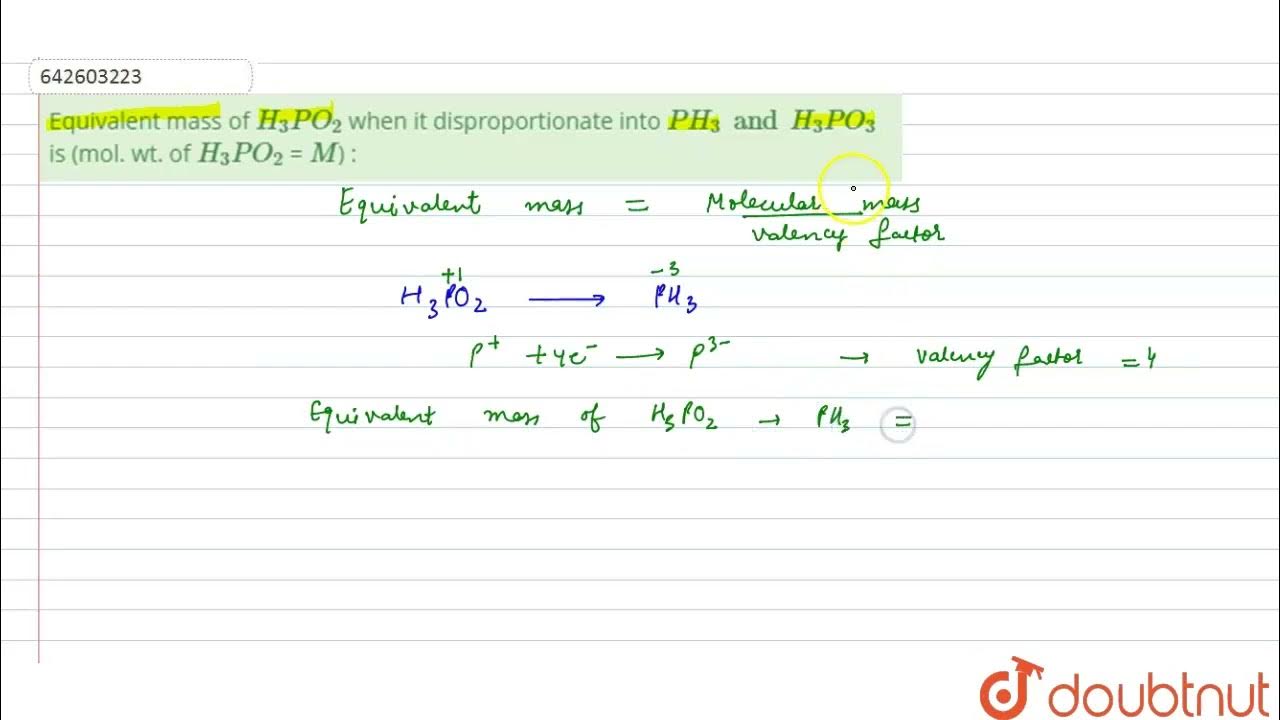 642603223
Equivalent mass of H₃PO₂ when it disproportionate into PH₃ and H₃PO₃
is (mol. wt. of H₃PO₂ = M) :
Equivalent mass = Molecular mass
valency factor
+1 -3
H₃PO₂ ⟶ PH₃
P⁺ + 4e⁻ ⟶ P³⁻ → valency factor = 4
Equivalent mass of H₃PO₂ → PH₃ =
doubtnut